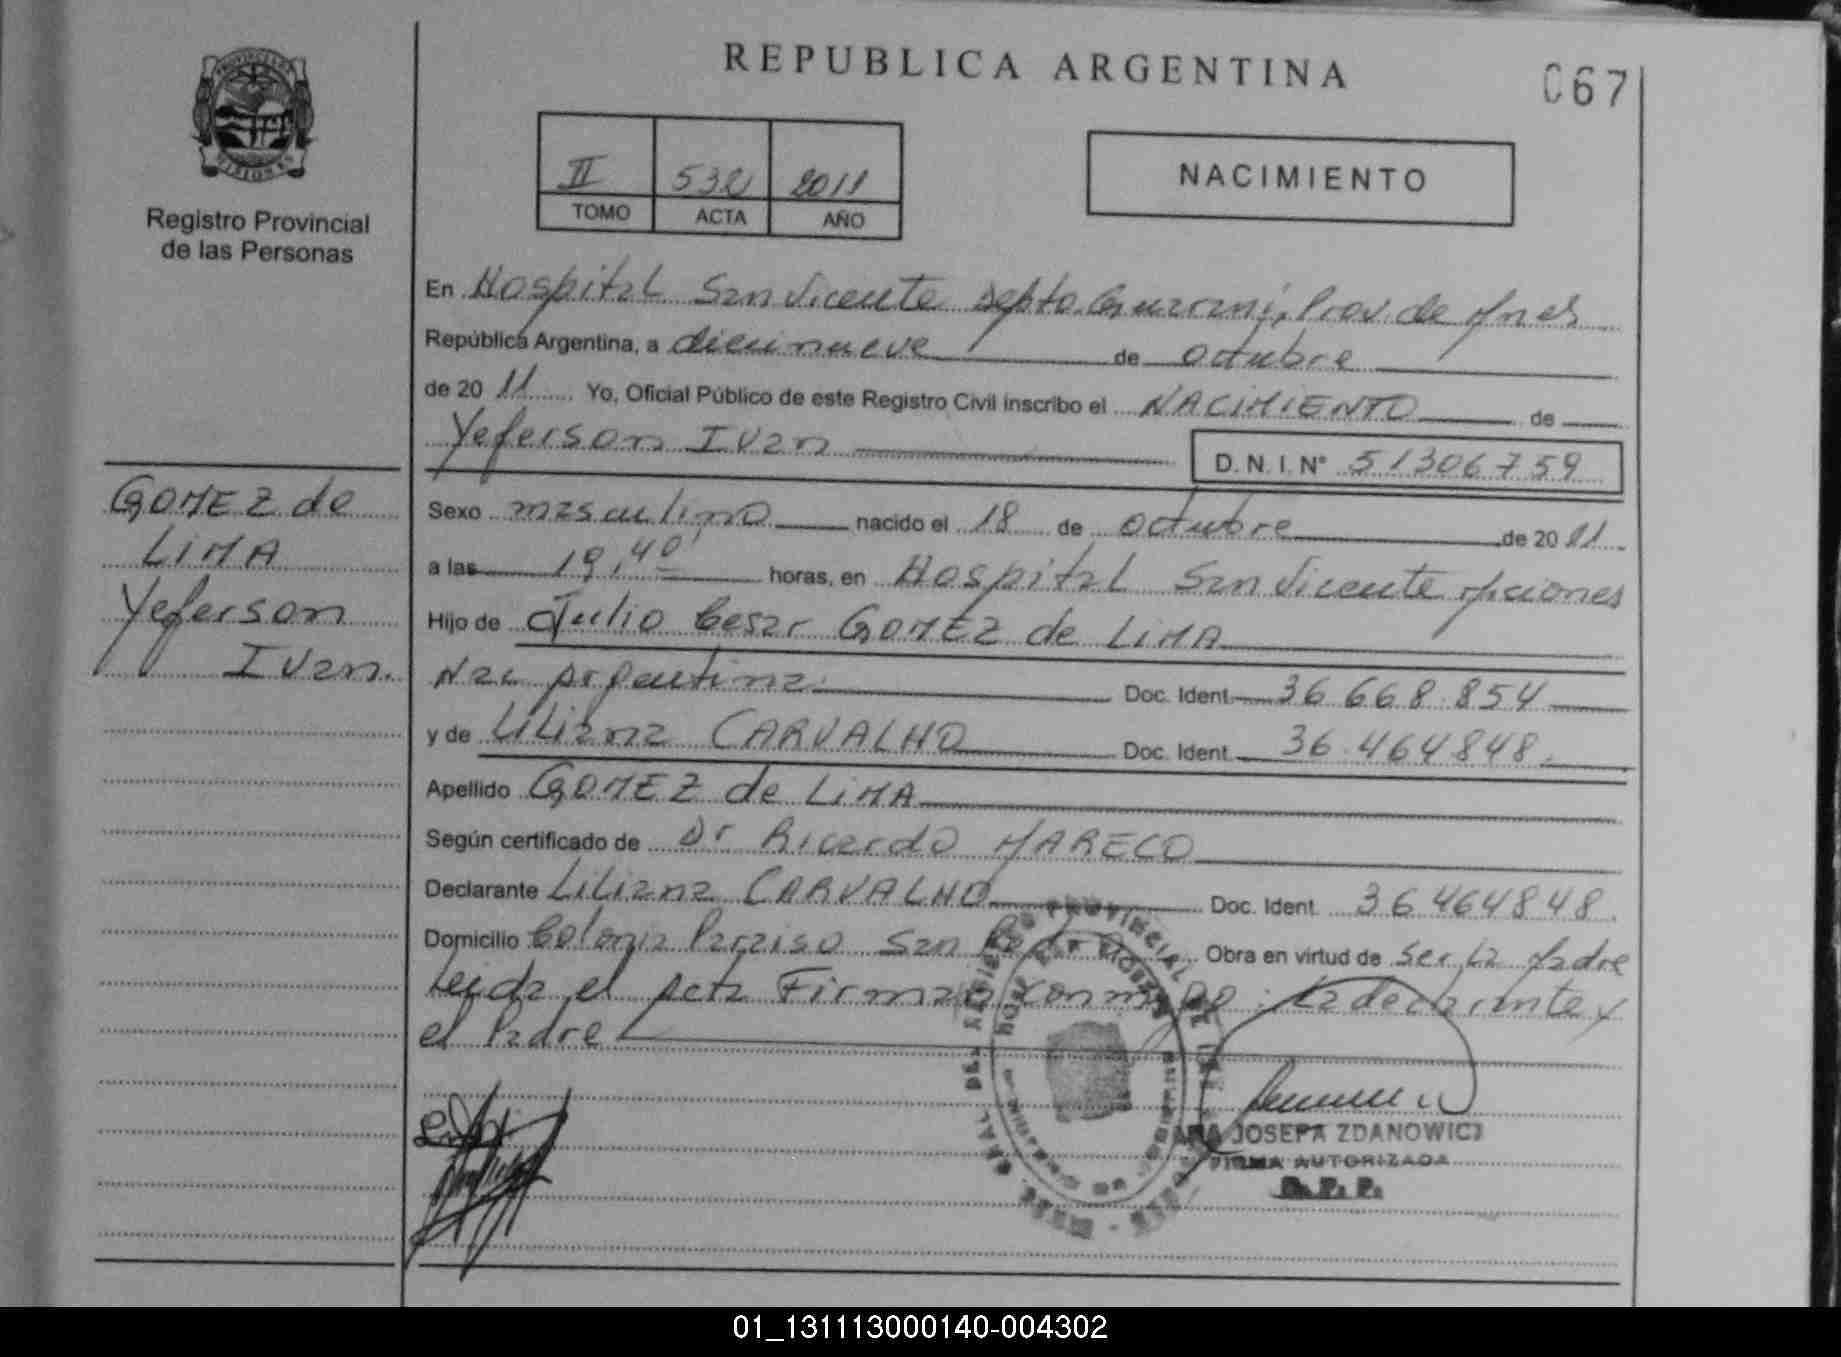 REPUBLICA ARGENTINA
067
PROVINCIA DE MISIONES
Registro Provincial
de las Personas
II 532 2011
TOMO ACTA AÑO
NACIMIENTO
En Hospital San Vicente Depto. Guaraní, Prov. de Mnes
República Argentina, a diecinueve de octubre
de 2011 Yo, Oficial Público de este Registro Civil inscribo el NACIMIENTO de
Yeferson Ivan D.N.I. N° 51306759
GOMEZ de
LIMA
Yeferson
Ivan.
Sexo masculino nacido el 18 de octubre de 2011
a las 19,40 horas, en Hospital San Vicente Misiones
Hijo de Julio Cesar GOMEZ de LIMA
Nac Argentina Doc. Ident. 36 668.854
y de Liliana CARVALHO Doc. Ident. 36.464848.
Apellido GOMEZ de LIMA
Según certificado de Dr Ricardo MARECO
Declarante Liliana CARVALHO Doc. Ident. 36464848.
Domicilio Colonia Paraiso San Obra en virtud de ser la Madre
Leida el Acta Firman conmigo: La declarante y
el Padre
JOSEFA ZDANOWICZ
FIRMA AUTORIZADA
R.P.P.
01_131113000140-004302